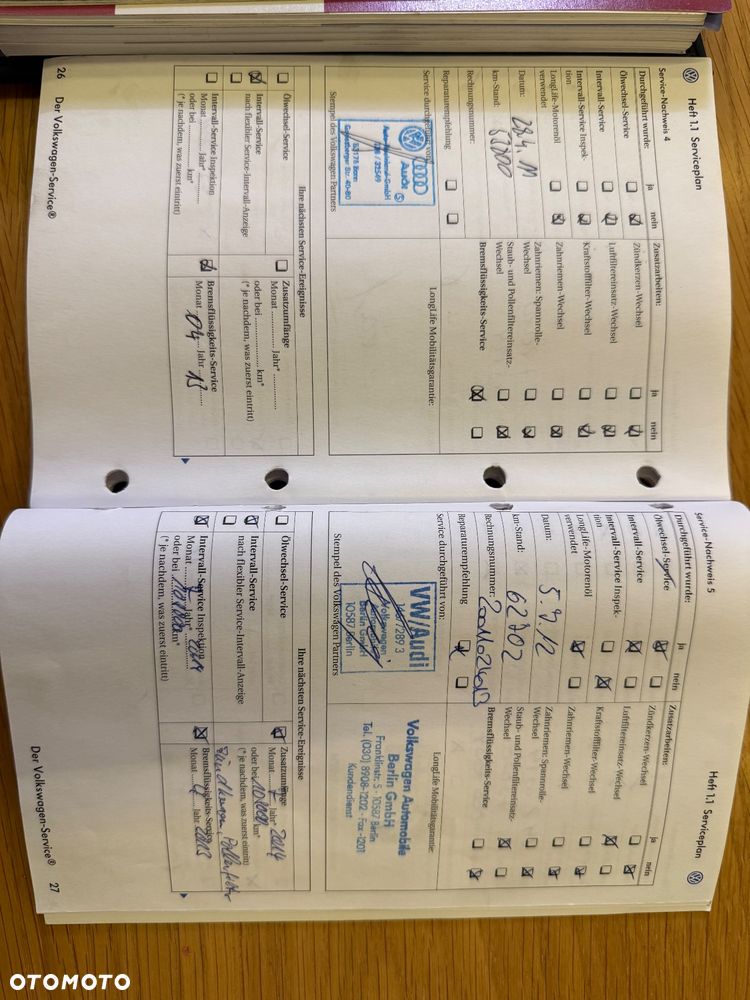 Heft 1.1 Serviceplan
Service-Nachweis 4
Durchgeführt wurde:
ja
nein
Ölwechsel-Service
Intervall-Service
Intervall-Service Inspek-
tion
LongLife-Motorenöl
verwendet
Datum:
28.4.11
km-Stand:
Rechnungsnummer:
Reparaturempfehlung
Service durchgeführt von:
Audi
53176 Bonn
Stempel des Volkswagen Partners
Zusatzarbeiten:
ja
nein
Zündkerzen-Wechsel
Luftfiltereinsatz-Wechsel
Kraftstofffilter-Wechsel
Zahnriemen-Wechsel
Zahnriemen: Spannrolle-
Wechsel
Staub- und Pollenfiltereinsatz-
Wechsel
Bremsflüssigkeits-Service
LongLife Mobilitätsgarantie:
Ihre nächsten Service-Ereignisse
Ölwechsel-Service
Intervall-Service
nach flexibler Service-Intervall-Anzeige
Intervall-Service Inspektion
Monat ............ Jahr* ............
oder bei ............ km*
(* je nachdem, was zuerst eintritt)
Zusatzumfänge
Monat ............ Jahr* ............
oder bei ............ km*
(* je nachdem, was zuerst eintritt)
Bremsflüssigkeits-Service
Monat 04 Jahr 13
26
Der Volkswagen-Service®
Heft 1.1 Serviceplan
Service-Nachweis 5
Durchgeführt wurde:
ja
nein
Ölwechsel-Service
Intervall-Service
Intervall-Service Inspek-
tion
LongLife-Motorenöl
verwendet
Datum:
5.7.12
km-Stand:
62702
Rechnungsnummer:
Reparaturempfehlung
Service durchgeführt von:
VW/Audi
289 3
Volkswagen
Automobile
Berlin GmbH
10587 Berlin
Stempel des Volkswagen Partners
Zusatzarbeiten:
ja
nein
Zündkerzen-Wechsel
Luftfiltereinsatz-Wechsel
Kraftstofffilter-Wechsel
Zahnriemen-Wechsel
Zahnriemen: Spannrolle-
Wechsel
Staub- und Pollenfiltereinsatz-
Wechsel
Bremsflüssigkeits-Service
LongLife Mobilitätsgarantie:
Volkswagen Automobile
Berlin GmbH
Franklinstr. 5 · 10587 Berlin
Tel. (030) 8908-1202 · Fax -1201
Kundendienst
Ihre nächsten Service-Ereignisse
Ölwechsel-Service
Intervall-Service
nach flexibler Service-Intervall-Anzeige
Intervall-Service Inspektion
Monat 7 Jahr* 2014
oder bei km*
(* je nachdem, was zuerst eintritt)
Zusatzumfänge
Monat 7 Jahr* 2014
oder bei km*
(* je nachdem, was zuerst eintritt)
Zündkerzen, Pollenfilter
Bremsflüssigkeits-Service
Monat 4 Jahr 2013
Der Volkswagen-Service®
27
OTOMOTO